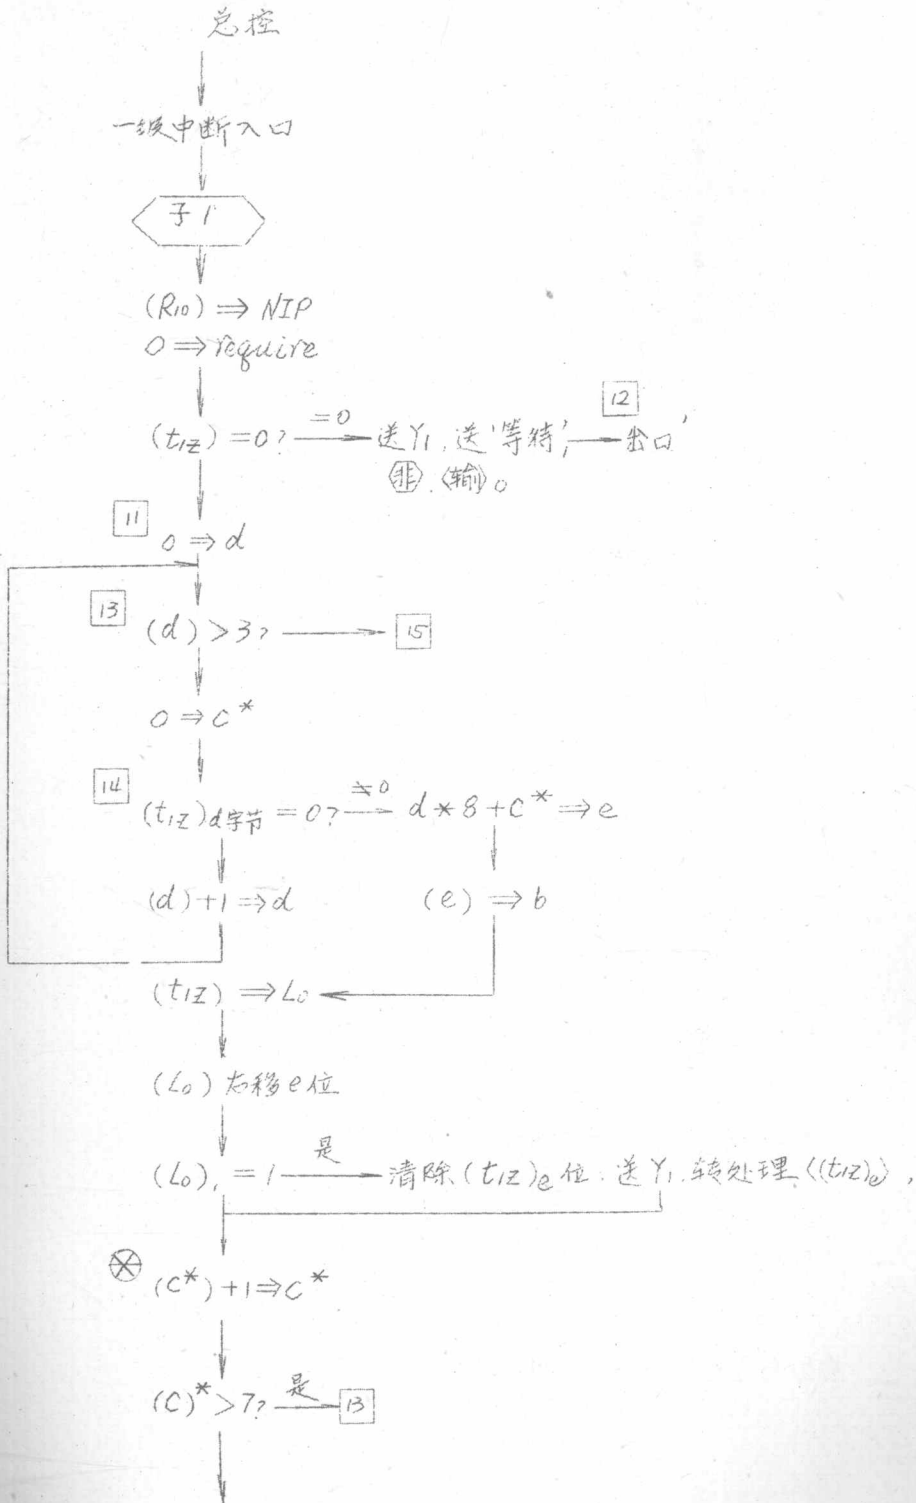 总控
一级中断入口
子1
(R₁₀) ⇒ NIP
0 ⇒ require
(t₁z) = 0? =0 送Y₁, 送'等待', 12 出口'
非. 输。
11 0 ⇒ d
13 (d) > 3? 15
0 ⇒ C*
14 (t₁z)d字节 = 0? ≠0 d * 8 + C* ⇒ e
(d) + 1 ⇒ d (e) ⇒ b
(t₁z) ⇒ L₀
(L₀) 右移e位
(L₀)₁ = 1 是 清除(t₁z)e位. 送Y₁. 转处理〈(t₁z)e〉,
(C*) + 1 ⇒ C*
(C)* > 7? 是 13